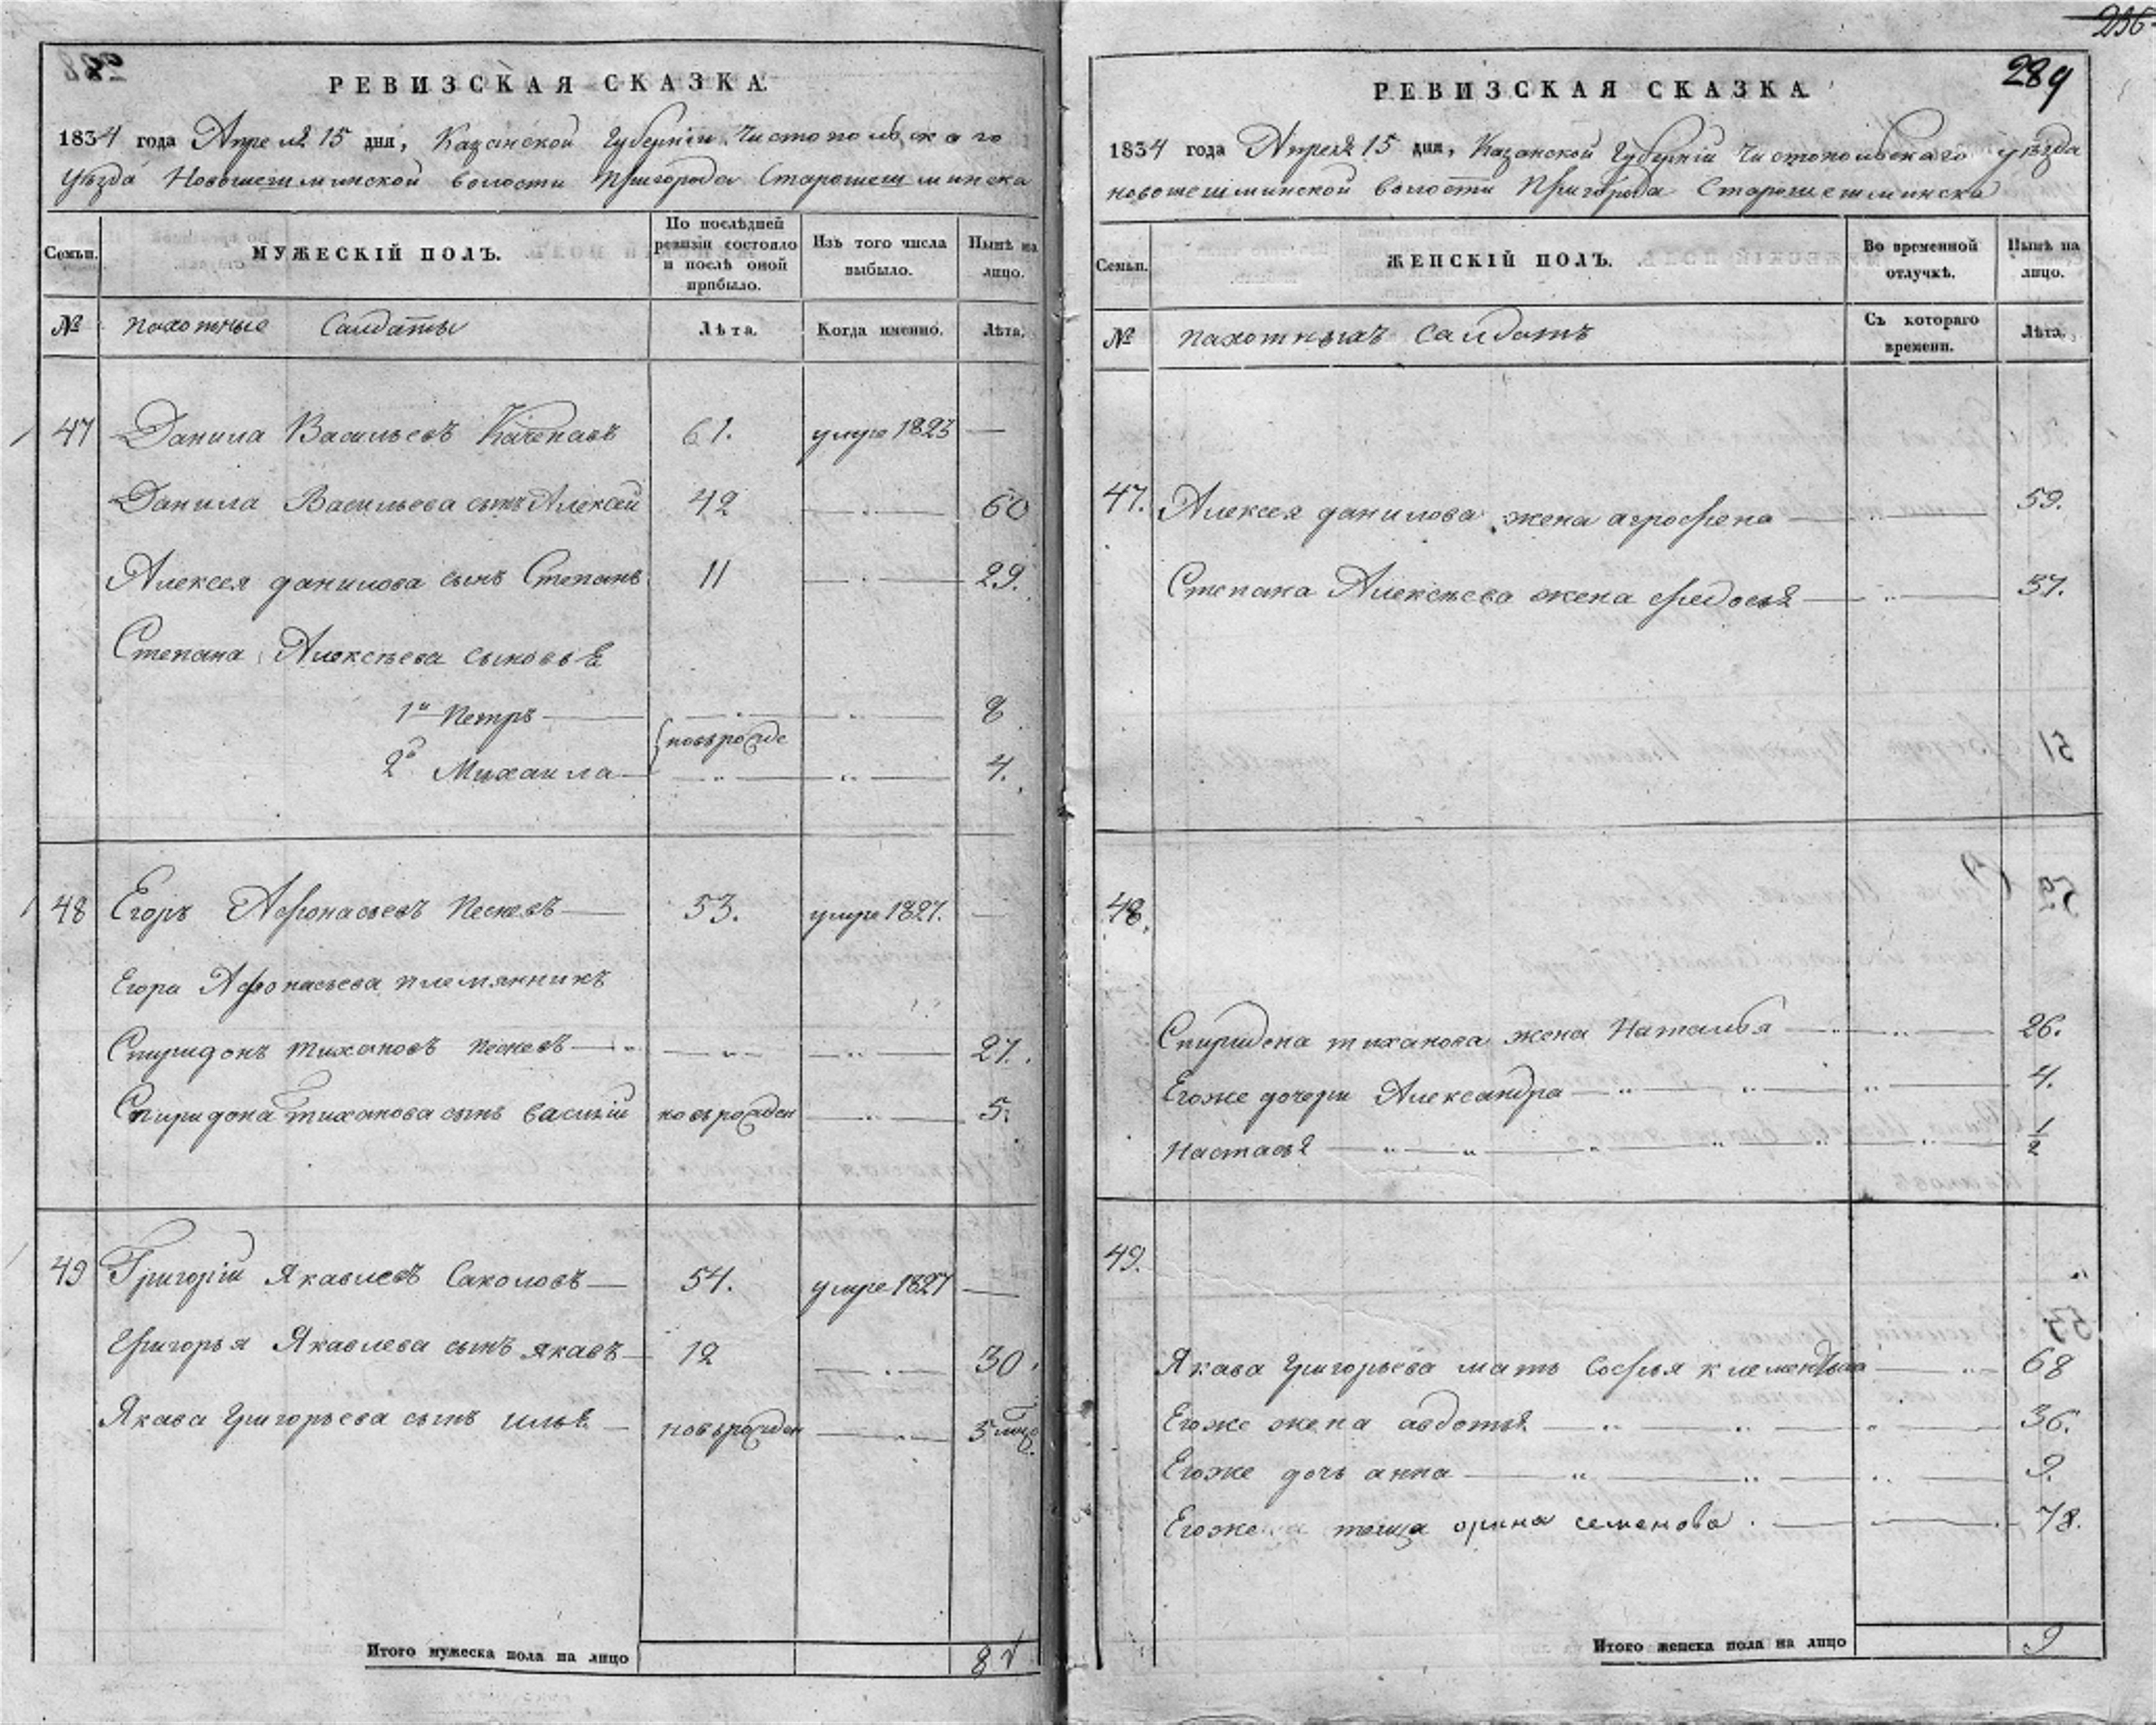 РЕВИЗСКАЯ СКАЗКА.
1834 года Апреля 15 дня, Казанской Губернiи Чистопольскаго
уѣзда Новошешминской волости Пригорода Старошешминска
Семьи. МУЖЕСКIЙ ПОЛЪ. По послѣдней ревизiи состояло и послѣ оной прибыло. Изъ того числа выбыло. Нынѣ на лицо.
№ пахотные Салдаты Лѣта. Когда именно. Лѣта.
47 Данила Васильевъ 61. умре 1823 —
Данила Васильева сынъ Алексей 42 — 60
Алексея данилова сынъ Степанъ 11 — 29.
Степана Алексѣева сыновья
1й Петръ — 8
{новорожде
2й Михаила — 4.
48 Егоръ Афонасьевъ Песневъ — 53. умре 1827. —
Егора Афонасьева племянникъ
Спиридонъ тихановъ Песневъ — 27.
Спиридона тиханова сынъ василiй новорожден — 5.
49 Григорiй Якавлевъ Саколовъ — 54. умре 1827 —
Григорья Якавлева сынъ якавъ — 12 — 30.
Якава Григорьева сынъ илья — новорожден — 5
Итого мужеска пола на лицо 8
236
289
РЕВИЗСКАЯ СКАЗКА
1834 года Апреля 15 дня, Казанской Губернiи Чистопольскаго уѣзда
новошешминской волости Пригорода Старошешминска
Семьи. ЖЕНСКIЙ ПОЛЪ. Во временной отлучкѣ. Нынѣ на лицо.
№ пахотныхъ салдатъ Съ котораго времени. Лѣта.
47. Алексея данилова жена агрофена — 59.
Степана Алексѣева жена федосья — 37.
48.
Спиридона тиханова жена Наталья — 26.
Егоже дочери Александра — 4.
Настасья — 1/2
49.
Якава Григорьева мать Софья — 68
Егоже жена авдотья — 36.
Егоже дочь анна — 9.
Егоже теща орина семенова — 78.
Итого женска пола на лицо 9